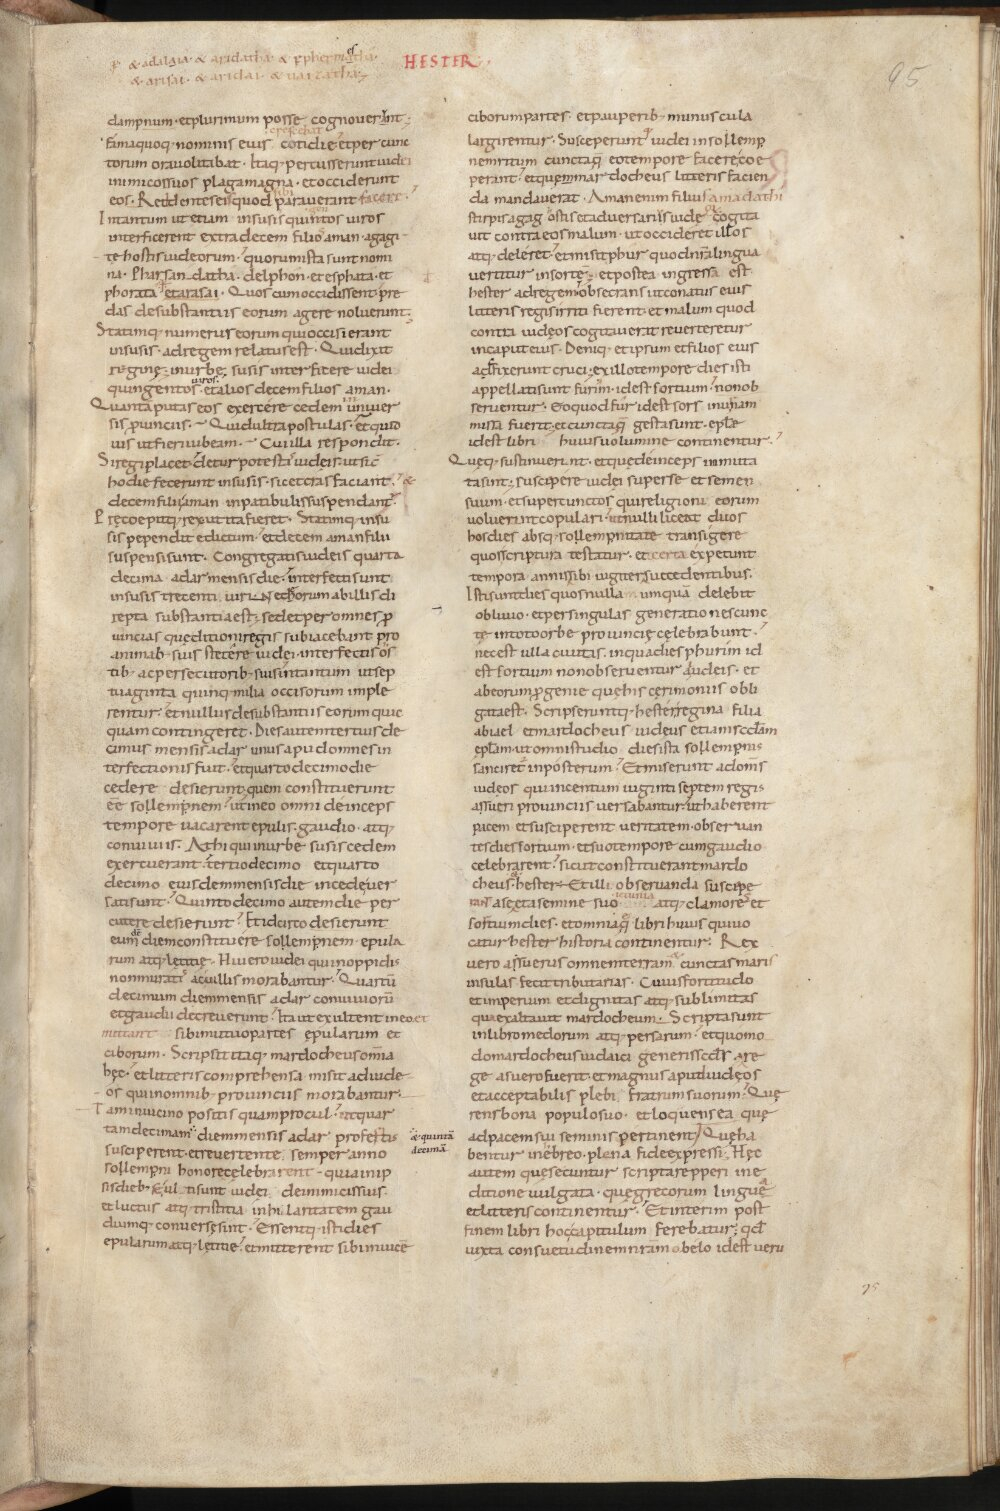 & adalaia & aridatha & phermesta
& arisai & aridai & uaizatha
HESTER
95
dampnum etplurimum posse cognouerant
famaquoq; nominis eius cotidie etper cunc
crescebat
torum orauolitabat. Itaq; percusserunt iudei
inimicossuos plagamagna. etocciderunt
eos. Reddenteseis quod parauerant facere
sibi
Intantum ut etiam insusis quintos uiros
interficerent extradecem filios aman. agagi
te hostis iudeorum. quorum ista sunt nomi
na. Pharsan datha. delphon. et esphata. et
phorata etarasai. Quos cum occidissent. pre
das desubstantiis eorum agere noluerunt.
Statimq; numerus eorum quioccisi erant
insusis. adregem relatus est. Quidixit
reginę. inurbe susis interficere iudei
quingentos uiros. etalios decem filios aman.
Quantaputas eos exercere cedem inuniuer
sis puinciis. Quidultra postulas. etquid
uis utfieri iubeam. Cui illa respondit.
Si regi placet detur potestas iudeis. ut sic
hodie fecerunt insusis. sic etcras faciant. &
decem filii aman inpatibulis suspendant.
Precoepitq; rex ut ita fieret. Statimq; insu
sis pependit edictum. etdecem aman filii
suspensi sunt. Congregatis iudeis quarta
decima adar mensis die. interfecti sunt
insusis trecenti uiri. Nec eorum ab illis di
repta substantia est. sed et per omnes p
uincias quę ditioni regis subiacebant pro
animab; suis stetere iudei. interfectis os
tib; ac persecutorib; suis intantum ut sep
tuaginta quinq; milia occisorum imple
rentur. et nullus desubstantiis eorum quic
quam contingeret. Dies autem tertius de
cimus mensis adar unus apud omnes in
terfectionis fuit. etquarto decimo die
cedere desierunt. quem constituerunt
ee sollempnem. ut in eo omni deinceps
tempore uacarent epulis. gaudio. atq;
conuiuiis. At hi qui inurbe susis cedem
exercuerant. tertio decimo et quarto
decimo eiusdem mensis die incede uer
sati sunt. Quinto decimo autem die per
cutere desierunt. Et idcirco desierunt
eundem diem constituere sollempnem epula
rum atq; lętitię. Hi uero iudei qui in oppidis
non muratis ac uillis morabantur. Quartu
decimum diem mensis adar conuiuioru
et gaudii decreuerunt. Ita ut exultent in eo. et
mittant sibi mutuo partes epularum et
ciborum. Scripsit itaq; mardocheus omia
hęc. et litteris comprehensa misit ad iude
os qui in omnib; prouinciis morabantur.
Tam in uicino positis quam procul. ut quar
tamdecimam diem mensis adar pro festis
& quinta
decima
susciperent. et reuertente semper anno
sollempni honore celebrarent. quia in ip
sis dieb; se ulti sunt iudei de inimicis suis.
et luctus atq; tristitia in hilaritatem gau
diumq; conuersę sint. Essentq; isti dies
epularum atq; lętitię. et mitterent sibi inuice
ciborum partes et pauperib; munuscula
largirentur. Susceperuntq; iudei in sollemp
nem ritum cuncta quę eo tempore facere coe
perant. et quę mardocheus litteris facien
da mandauerat. Aman enim filius amadathi
stirpis agag ostis et aduersarius iude cogita
uit contra eos malum. ut occideret illos
atq; deleret. et misit phur quod nra lingua
uertitur in sorte. et postea ingressa est
hester ad regem obsecrans ut conatus eius
litteris regis irriti fierent. et malum quod
contra iudęos cogitauerit reuerteretur
in caput eius. Deniq; et ipsum et filios eius
adfixerunt cruci. ex illo tempore dies isti
appellati sunt furim. id est sortium. non ob
seruentur. Eo quod fur id est sors in urnam
missa fuerit. et cuncta quę gesta sunt. eple
id est libri huius uolumine continentur.
Quęq; sustinuerint. et quę deinceps inmuta
ta sint. suscipere iudei super se et semen
suum. et super cunctos qui religioni eorum
uoluerunt copulari. ut nulli liceat duos
hos dies absq; sollempnitate transigere
quos scriptura testatur. et certa expetunt
tempora annis sibi iugiter succedentibus.
Isti sunt dies quos nulla umqua delebit
obliuio. et per singulas generationes cunc
tę in toto orbe prouincię celebrabunt.
nec est ulla ciuitas. in qua dies phurim id
est sortium non obseruentur a iudeis. et
ab eorum pgenie quę his cerimoniis obli
gata est. Scripseruntq; hester regina filia
abiael et mardocheus iudeus etiam scdam
eplam. ut omni studio dies ista sollempnis
sanciret in posterum. Et miserunt ad oms
iudęos qui in centum uiginti septem regis
assueri prouinciis uersabantur. ut haberent
pacem et susciperent ueritatem. obseruan
tes dies sortium. et suo tempore cum gaudio
celebrarent. sicut constituerant mardo
cheus. hester. Et illi obseruanda suscipe
runt a se et a semine suo ieiunia atq; clamores et
sortium dies. et omnia quę libri huius qui uo
catur hester historia continentur. Rex
uero assuerus omnem terram. cunctas maris
insulas fecit tributarias. Cuius fortitudo
et imperium et dignitas atq; sublimitas
qua exaltauit mardocheum. Scripta sunt
in libro medorum atq; persarum. et quomo
do mardocheus iudaici generis scds a re
ge asuero fuerit. et magnus apud iudęos
et acceptabilis plebi fratrum suorum. Quę
rens bona populo suo. et loquens ea quę
ad pacem sui seminis pertinent. Quę ha
bentur in ebreo. plena fide expressi. Hęc
autem quę secuntur scripta repperi in e
ditione uulgata. quę grecorum lingua
et litteris continentur. Et interim post
finem libri hoc capitulum ferebatur. qd
iuxta consuetudinem nram obelo id est ueru
95